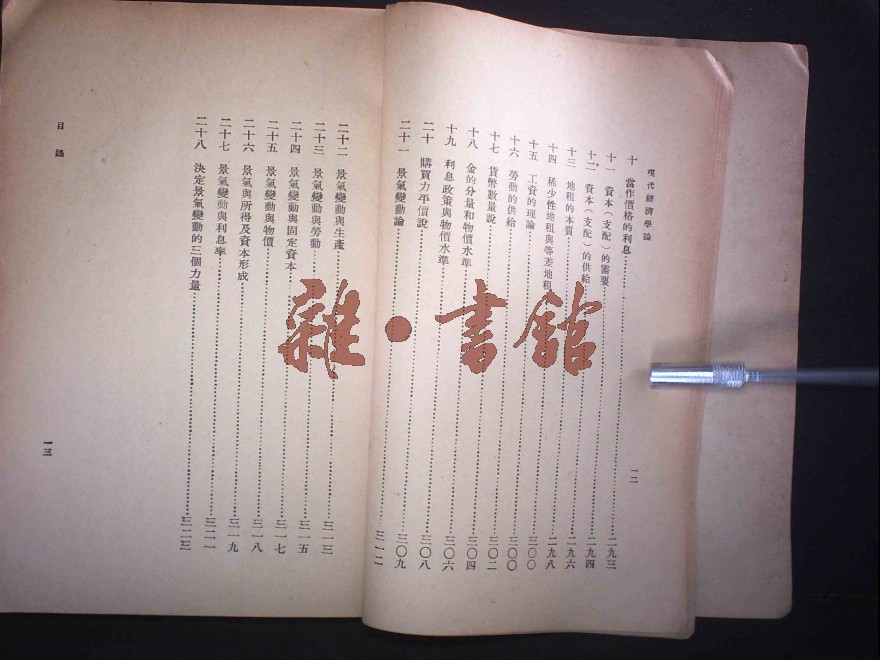 現代經濟學論
一二
十 當作價格的利息……二九三
十一 資本(支配)的需要……二九四
十二 資本(支配)的供給……二九六
十三 地租的本質……二九八
十四 稀少性地租與等差地租……三〇〇
十五 工資的理論……三〇〇
十六 勞動的供給……三〇二
十七 貨幣數量說……三〇四
十八 金的分量和物價水準……三〇六
十九 利息政策與物價水準……三〇八
二十 購買力平價說……三〇九
二十一 景氣變動論……三一二
二十二 景氣變動與生產……三一三
二十三 景氣變動與勞動……三一五
二十四 景氣變動與固定資本……三一七
二十五 景氣變動與物價……三一八
二十六 景氣與所得及資本形成……三一九
二十七 景氣變動與利息率……三二一
二十八 決定景氣變動的三個力量……三二三
目錄
一三
雜·書館